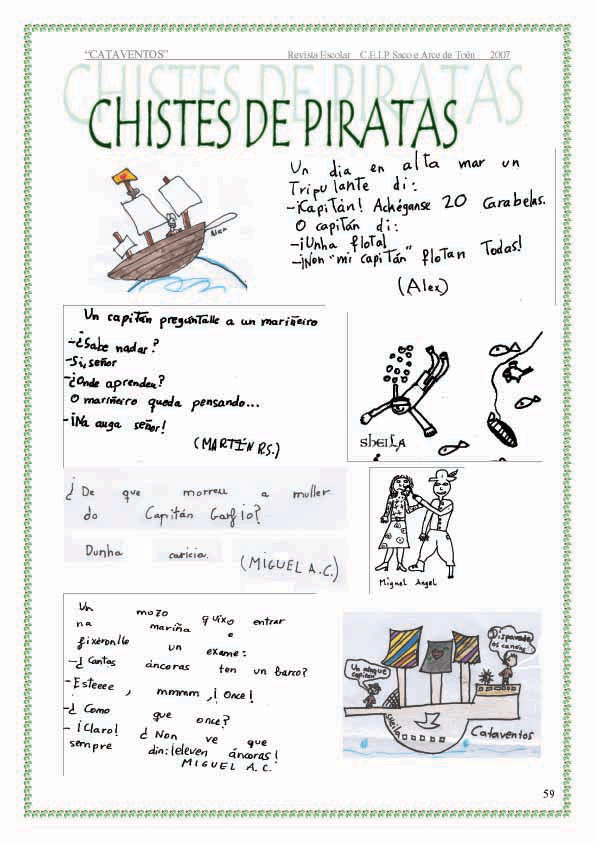 “CATAVENTOS” Revista Escolar C.E.I.P. Saco e Arce de Toén 2007
CHISTES DE PIRATAS
Alex
Un dia en alta mar un
Tripulante di:
-¡Capitán! Achéganse 20 carabelas.
O capitán di:
-¡Unha flota!
-¡Non "mi capitán" flotan Todas!
(Alex)
Un capitán pregúntalle a un mariñeiro
-¿Sabe nadar?
-Si, señor
-¿Onde aprendeu?
O mariñeiro queda pensando...
-¡Na auga señor!
(MARTÍN R.S.)
SHEILA
¿De que morreu a muller
do Capitán Garfio?
Dunha caricia.
(MIGUEL A.C.)
Miguel Angel
Un mozo quixo entrar
na mariña e
fixéronlle un exame:
-¿Cantas áncoras ten un barco?
-Esteeee, mmmm, ¡Once!
-¿Como que once?
-¡Claro! ¿Non ve que
sempre din:¡eleven áncoras!
MIGUEL A.C.
Un ataque
capitán
Disparade
os canóns!
Sheila
Cataventos
59